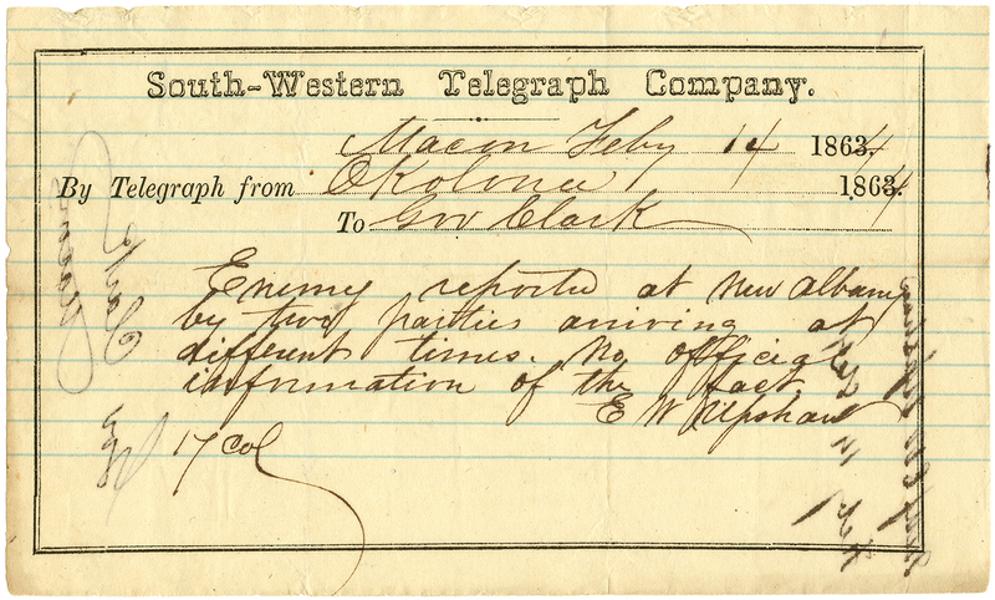 South-Western Telegraph Company.
Macon Feby 14 18634.
By Telegraph from Okolona 18634.
To Gov Clark
Enemy reported at New Albany
by two parties arriving at
different times. No official
information of the fact.
E W Upshaw
17 Col